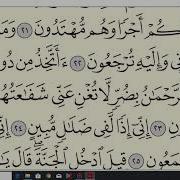 ـكُمْ أَجْرًا وَهُم مُّهْتَدُونَ ٢١ وَمَـ
ـنِى وَإِلَيْهِ تُرْجَعُونَ ٢٢ ءَأَتَّخِذُ مِن دُو
ـرَّحْمَٰنُ بِضُرٍّ لَّا تُغْنِ عَنِّى شَفَٰعَتُهُـ
ـونِ ٢٣ إِنِّىٓ إِذًا لَّفِى ضَلَٰلٍ مُّبِينٍ ٢٤ إِنِّـ
ـمَعُونِ ٢٥ قِيلَ ٱدْخُلِ ٱلْجَنَّةَ ۖ قَالَ يَٰـ